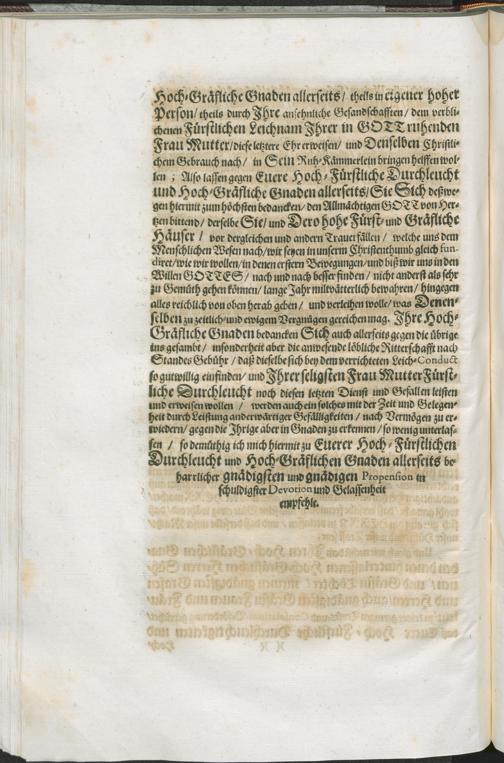 Hoch-Gräfliche Gnaden allerseits / theils in eigener hoher
Person / theils durch Ihre ansehnliche Gesandschafften / dem verbli-
chenen Fürstlichen Leichnam Ihrer in GOTT ruhenden
Frau Mutter / diese letztere Ehr erweisen / und Denselben Christli-
chem Gebrauch nach / in Sein Ruh-Kämmerlein bringen helffen wol-
len ; Also lassen gegen Euere Hoch-Fürstliche Durchleucht
und Hoch-Gräfliche Gnaden allerseits / Sie Sich deßwe-
gen hiermit zum höchsten bedancken / den Allmächtigen GOTT von Her-
tzen bittend / derselbe Sie / und Dero hohe Fürst- und Gräfliche
Häuser / vor dergleichen und andern Trauerfällen / welche uns dem
Menschlichen Wesen nach / wir seyen in unserm Christenthumb gleich fun-
diret / wie wir wollen / in denen erstern Bewegungen / und biß wir uns in den
Willen GOTTES / nach und nach besser finden / nicht anderst als sehr
zu Gemüth gehen können / lange Jahr miltvätterlich bewahren / hingegen
alles reichlich von oben herab geben / und verleihen wolle / was Denen-
selben zu zeitlich- und ewigem Vergnügen gereichen mag. Ihre Hoch-
Gräfliche Gnaden bedancken Sich auch allerseits gegen die übrige
ins gesambt / insonderheit aber die anwesende löbliche Ritterschafft nach
Standes Gebühr / daß dieselbe sich bey dem verrichteten Leich-Conduct
so gutwillig einfinden / und Ihrer seligsten Frau Mutter Fürst-
liche Durchleucht noch diesen letzten Dienst und Gefallen leisten
und erweisen wollen / werden auch ein solches mit der Zeit und Gelegen-
heit durch Leistung anderwärtiger Gefälligkeiten / nach Vermögen zu er-
wiedern / gegen die Ihrige aber in Gnaden zu erkennen / so wenig unterlas-
sen / so demüthig ich mich hiermit zu Euerer Hoch-Fürstlichen
Durchleucht und Hoch-Gräflichen Gnaden allerseits be
harrlicher gnädigsten und gnädigen Propension in
schuldigster Devotion und Gelassenheit
empfehle.